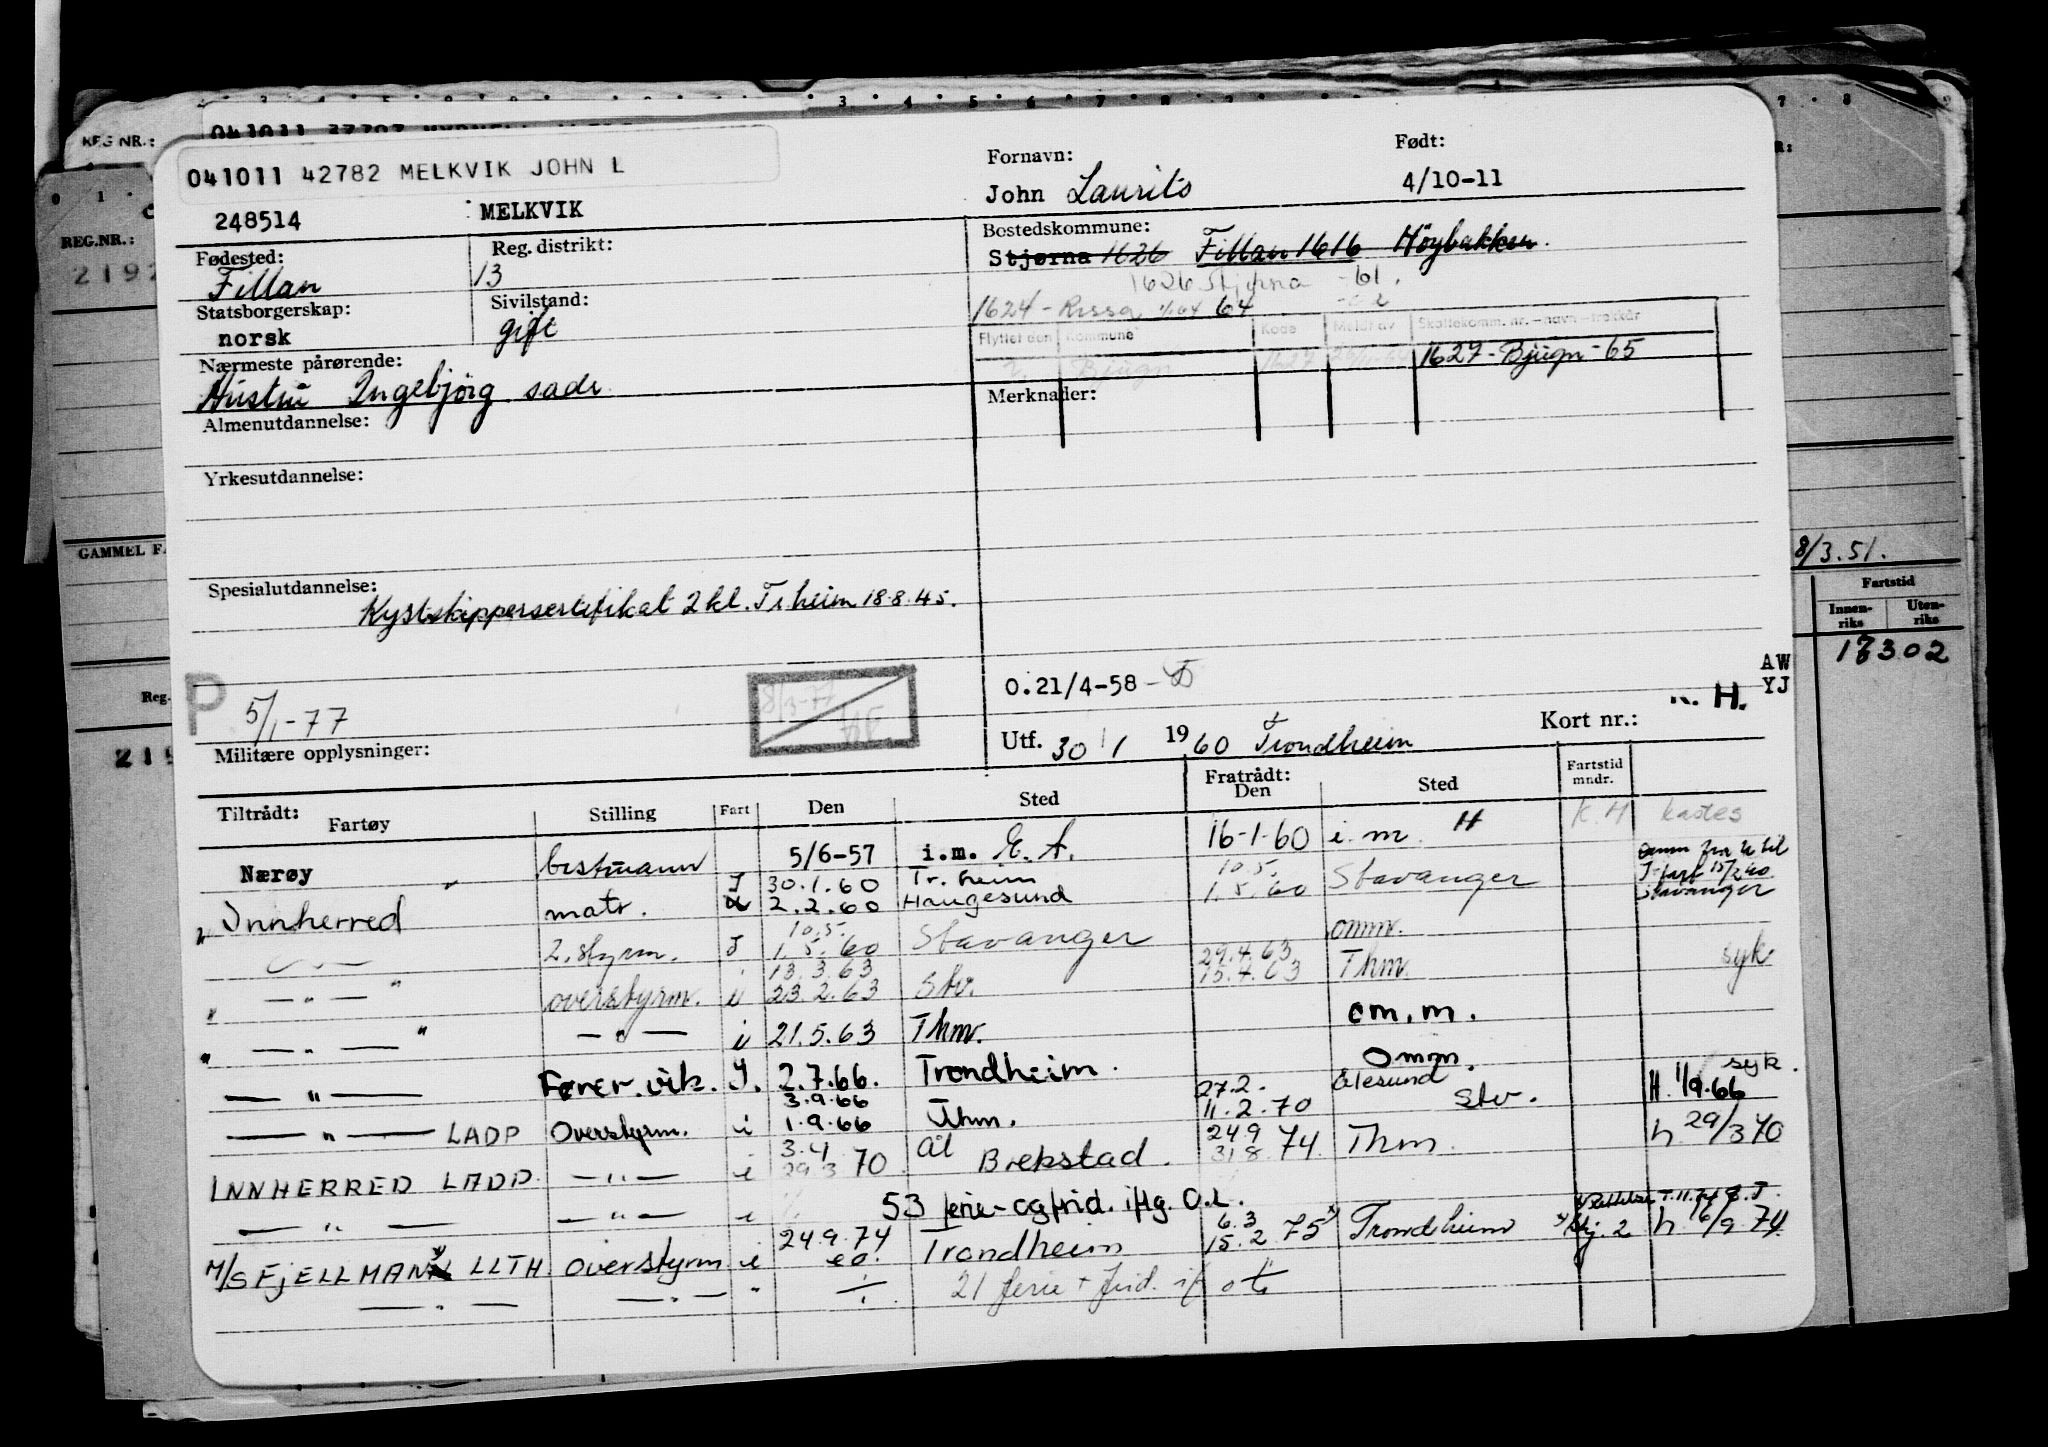 REG NR.:
041011 42782 MELKVIK JOHN L
248514 MELKVIK
Fornavn: Født:
John Laurits 4/10-11
Fødested: Reg. distrikt:
Fillan 13
Bostedskommune:
Stjørna 1626 Fillan 1616 Höybakken.
1626 Stjørna -61.
1624 - Rissa 64
Statsborgerskap: Sivilstand:
norsk gift
Flyttet den Kommune Kode Meldt av Skattekomm. nr. - navn - trekkår
Bjugn 1627 1627 - Bjugn - 65
Nærmeste pårørende:
Hustru Ingebjörg sads
Merknader:
Almenutdannelse:
Yrkesutdannelse:
Spesialutdannelse:
Kystskippersertifikat 2 kl. Tr.heim 18.8.45.
P 5/1-77
8/3-77
O.21/4-58
K. H.
AW
YJ
Militære opplysninger:
Utf. 30/1 1960 Trondheim Kort nr.:
Tiltrådt: Fartøy Stilling Fart Den Sted Fratrådt: Den Sted Fartstid mndr.
K. H kastes
Nærøy bestmann 5/6-57 i.m. E. A. 16-1-60 i.m. H
" Innherred " matr. I 30.1.60 Tr.heim 10.5. Stavanger
2.2.60 Haugesund 1.5.60
Stavanger
2. styrm. I 10.5. Stavanger omm.
1.5.60
— " — " overstyrm. i 13.3.63 Stv. 29.4.63 Thm. syk
23.2.63 15.4.63
— " — " — " — i 21.5.63 Thm. om.m.
— " — Fører. vik. I. 2.7.66. Trondheim. Omm. syk.
— " — LADP Overstyrm. i 3.9.66 Thm. 27.2. Ålesund H 1/9.66
1.9.66 11.2.70 Stv.
INNHERRED LADP — " — i 3.4 Ål 24.9 Thm. h 29/3 70
29.3 70 Brekstad. 31.8 74
— " — — " — i 53 ferie- og frid. iflg. O.L.
M/S FJELLMANN LLTH overstyrm i 24.9.74 Trondheim 6.3 Trondheim h 6/9 74
e.o. 15.2 75
— " — — " — " 21 ferie + frid. if
REG.NR.:
2192
GAMMEL
Reg.
8/3.51.
Fartstid
Innen-
riks
Uten-
riks